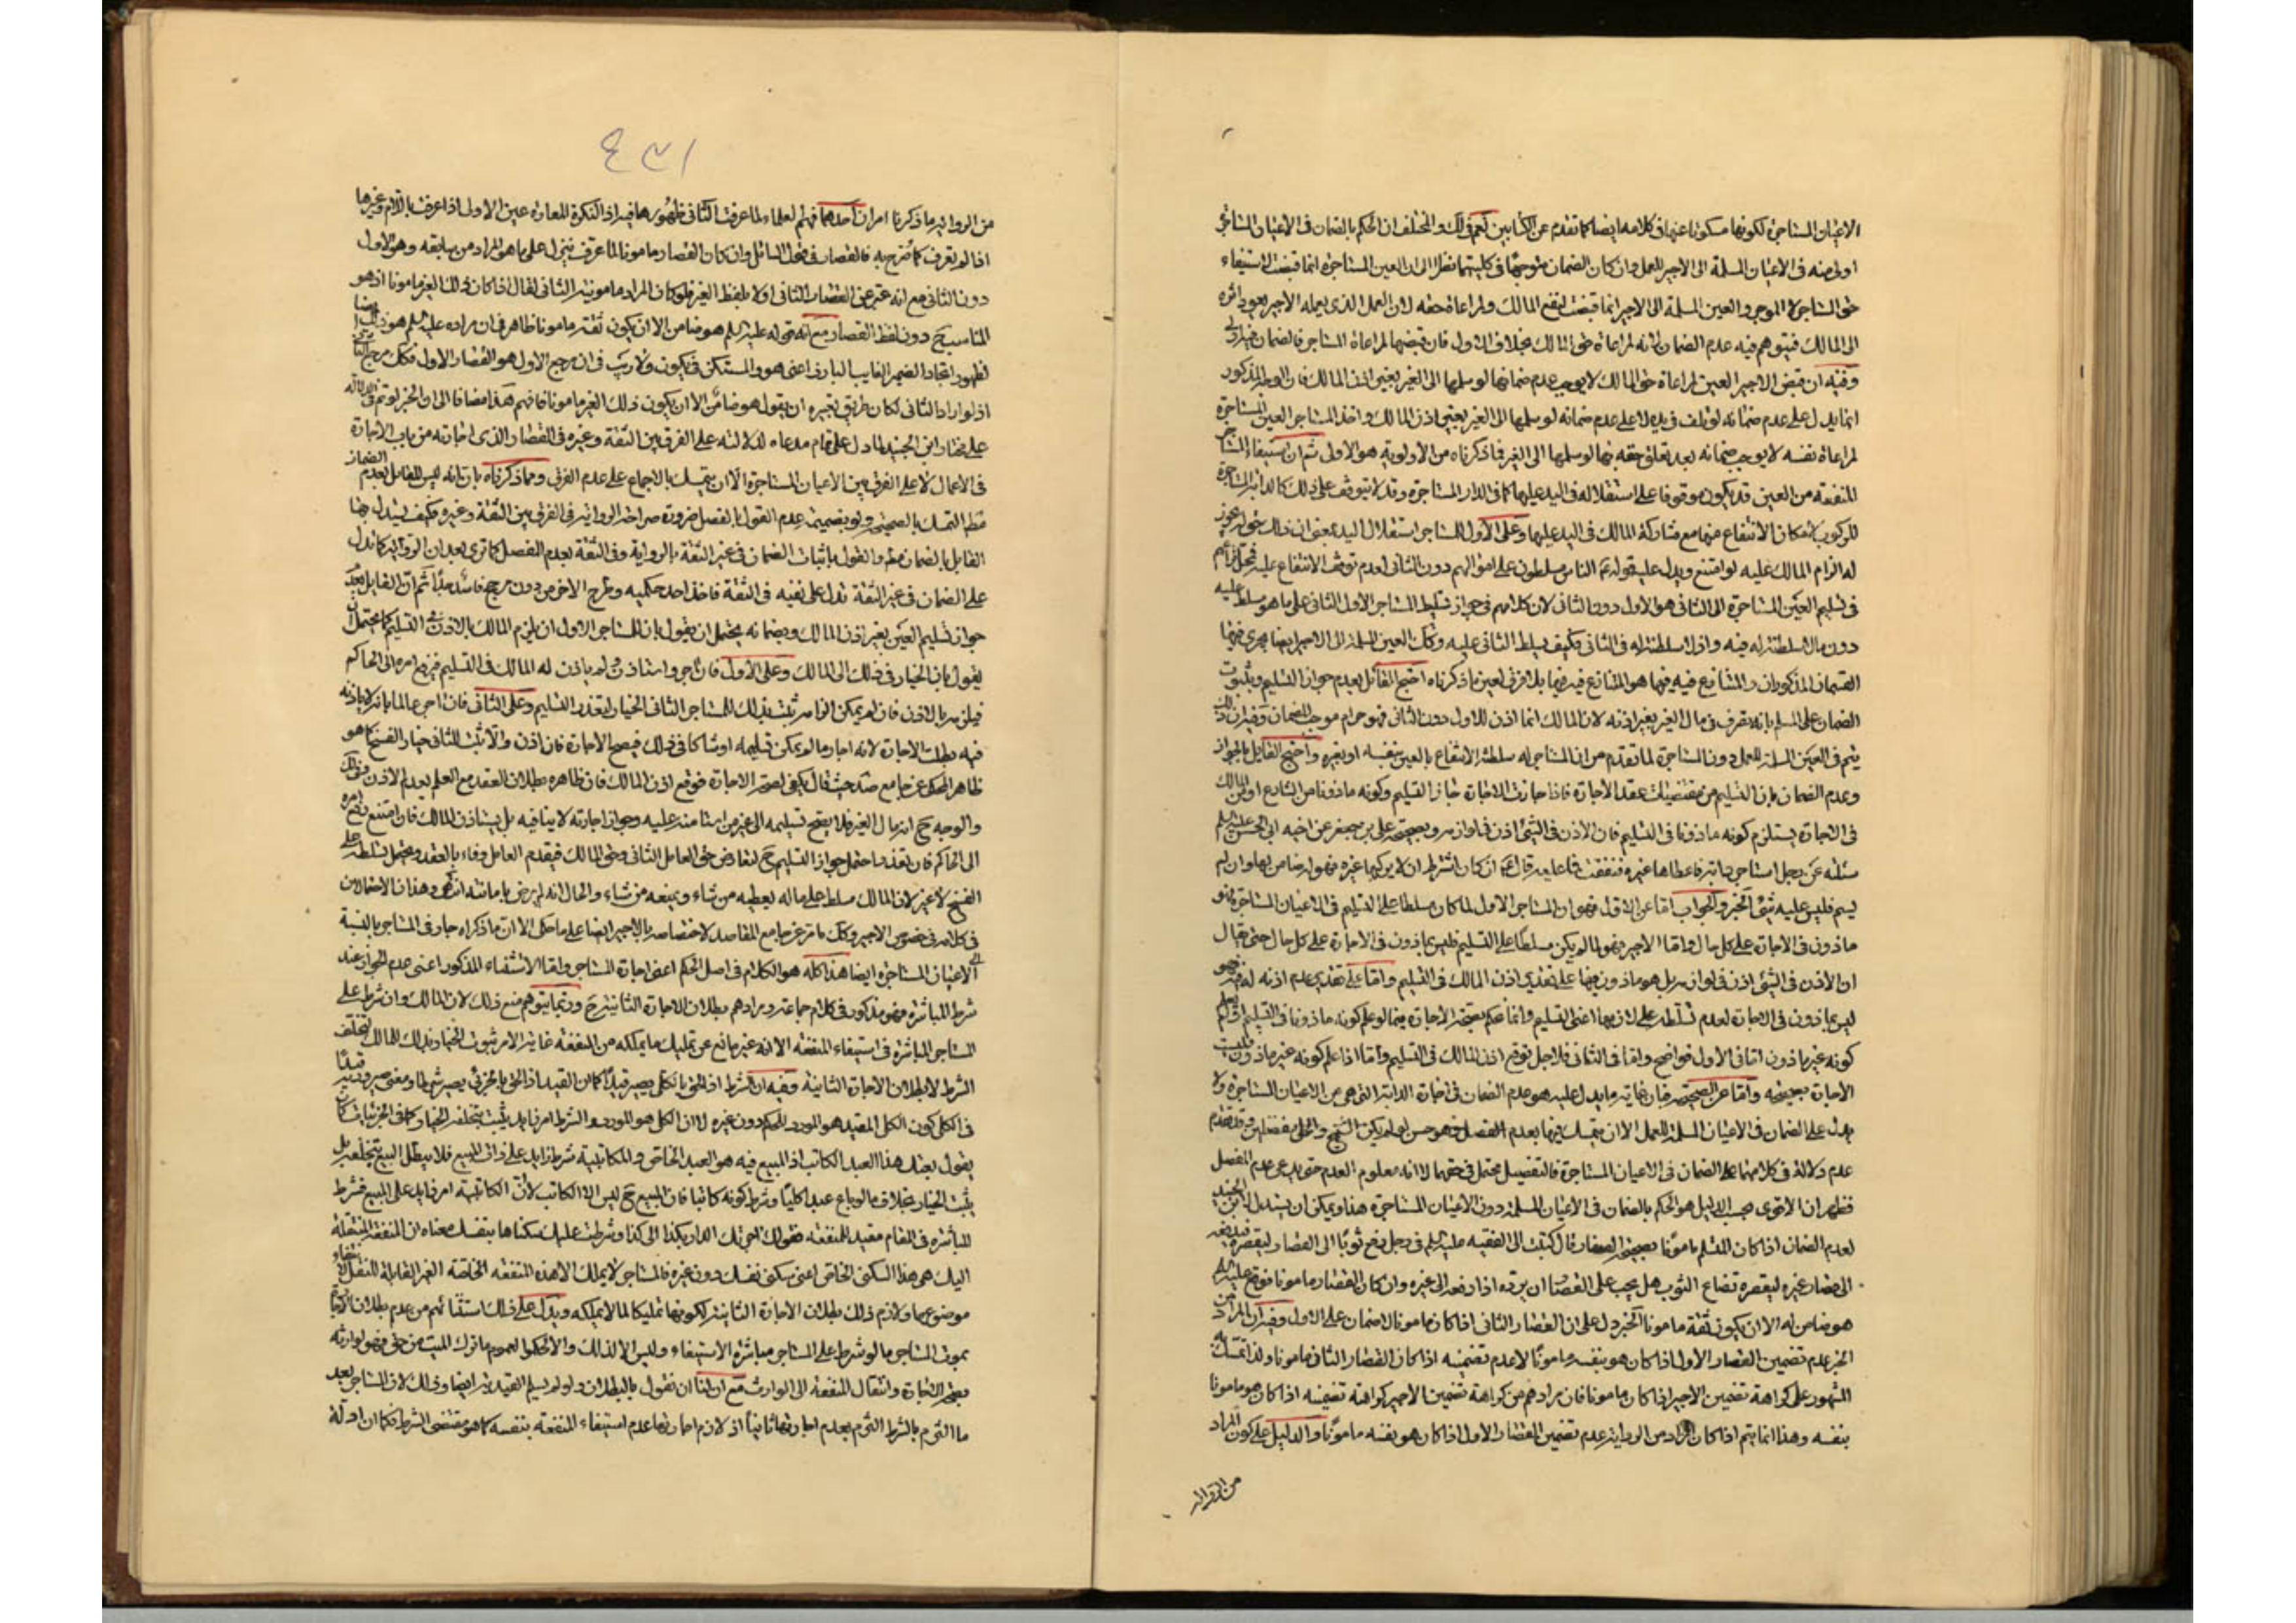 الاعيان المستاجرة لكونها مسكوتا عنها فى كلامه ايضا كما تقدم عن الكتابين نعم فى لك والمختلف ان الحكم بالضمان فى الاعيان المستاجرة
اولى منه فى الاعيان المسلمة الى الاجير للعمل وان كان الضمان متوجها فى كليتهما نظرا الى ان العين المستاجرة انما قبضت لاستيفاء
حق المستاجر لا الموجر والعين المسلمة الى الاجير انما قبضت لنفع المالك ولمراعاة حقه لان العمل الذى يعمله الاجير يعود اثره
الى المالك فيتوهم فيه عدم الضمان لانه لمراعاة حق المالك بخلاف الاول فان قبضها لمراعاة المستاجر فالضمان فيها اولى
وفيه ان قبض الاجير العين لمراعاة حق المالك لا يوجب عدم ضمانها لو سلمها الى الغير بغير اذن المالك فان الوجه المذكور
انما يدل على عدم ضمانه لو تلف فى يده لا على عدم ضمانه لو سلمها الى الغير بغير اذن المالك واخذ المستاجر العين المستاجرة
لمراعاة نفسه لا يوجب ضمانه بعد تعلق حقه بها لو سلمها الى الغير فما ذكرناه من الاولوية هو الاولى ثم ان استيفاء المستاجر
المنفعة من العين قد يكون موقوفا على استقلاله فى اليد عليها كما فى الدار المستاجرة وقد لا يتوقف على ذلك كالدابة المستاجرة
للركوب لامكان الانتفاع منها مع مشاركة المالك فى اليد عليها وعلى الاول للمستاجر استقلال اليد بمعنى ان ذلك حق له يجوز
له الزام المالك عليه لو امتنع ويدل عليه قوله عم الناس مسلطون على اموالهم دون الثانى لعدم توقف الانتفاع عليه فمحل كلامهم
فى تسليم العين المستاجرة الى الثانى هو الاول دون الثانى لان كلامهم فى جواز تسليط المستاجر الاول الثانى على ما هو مسلط عليه
دون ما لا سلطنة له فيه واذ لا سلطنة له فى الثانى فكيف يسلط الثانى عليه وكك العين المسلمة الى الاجير ايضا يجرى فيها
القسمان المذكوران والمتنازع فيه فيها هو المتنازع فيه فيها بلا فرق لعين ما ذكرناه احتج القائل بعدم جواز التسليم وثبوت
الضمان على المسلم بانه تصرف فى مال الغير بغير اذنه لان المالك انما اذن للاول دون الثانى فهو حرام موجب للضمان وفيه ان ذلك
يتم فى العين المسلمة للعمل دون المستاجرة لما تقدم من ان المستاجر له سلطنة الانتفاع بالعين بنفسه او بغيره واحتج القايل بالجواز
وعدم الضمان بان التسليم من مقتضيات عقد الاجارة فاذا جازت الاجارة جاز التسليم وكونه ماذونا من الشارع او من المالك
فى الاجارة يستلزم كونه ماذونا فى التسليم فان الاذن فى الشئ اذن فى لوازمه وبصحيحة على بن جعفر عن اخيه ابى الحسن عليه السلم
سئلته عن رجل استاجر دابة فاعطاها غيره فنفقت فما عليه قال عم ان كان اشترط ان لا يركبها غيره فهو لها ضامن وان لم
يسم فليس عليه شئ الخبر والجواب اما عن الاول فهو ان المستاجر الاول لما كان مسلطا على التسليم فى الاعيان المستاجرة فهو
ماذون فى الاجارة على كل حال واما الاجير فهو لما لم يكن مسلطا على التسليم فليس بماذون فى الاجارة على كل حال حتى يقال
ان الاذن فى الشئ اذن فى لوازمه بل هو ماذون فيها على تقدير اذن المالك فى التسليم واما على تقدير عدم اذنه له فهو
ليس بماذون فى الاجارة لعدم تسلطه على لازمها اعنى التسليم وانما نحكم بصحة الاجارة فيما لو علم كونه ماذونا فى التسليم او لم يعلم
كونه غير ماذون اما فى الاول فواضح واما فى الثانى فلاجل توقع اذن المالك فى التسليم واما اذا علم كونه غير ماذون فليست
الاجارة بصحيحة واما عن الصحيحة فان غاية ما يدل عليه هو عدم الضمان فى اجارة الدابة التى هى من الاعيان المستاجرة ولا
يدل على الضمان فى الاعيان المسلمة للعمل الا ان يتمسك فيها بعدم الفصل فهو حسن لو لم يكن الشيخ والحلى مفصلين وقد تقدم
عدم دلالة فى كلامهما على الضمان فى الاعيان المستاجرة فالتفصيل محتمل فى حقهما لا انه معلوم العدم حتى يدعى عدم الفصل
فظهر ان الاقوى بحسب الدليل هو الحكم بالضمان فى الاعيان المسلمة دون الاعيان المستاجرة هذا ويمكن ان يستدل لابن الجنيد
لعدم الضمان اذا كان المتسلم مامونا بصحيحة الصفار قال كتبت الى الفقيه عليه السلم فى رجل دفع ثوبا الى القصار ليقصره فيدفعه
الى قصار غيره ليقصره فضاع الثوب هل يجب على القصار ان يرده اذا دفعه الى غيره وان كان القصار مامونا فوقع عليه السلم
هو ضامن له الا ان يكون ثقة مامونا الخبر دل على ان القصار الثانى اذا كان مامونا لا ضمان على الاول وفيه ان المراد من
الخبر عدم تضمين القصار الاول اذا كان هو بنفسه مامونا لا عدم تضمينه اذا كان القصار الثانى مامونا ولذا تمسك به
المشهور على كراهة تضمين الاجير اذا كان مامونا فان مرادهم من كراهة تضمين الاجير كراهة تضمينه اذا كان هو مامونا
بنفسه وهذا انما يتم اذا كان المراد من الرواية عدم تضمين القصار الاول اذا كان هو نفسه مامونا والدليل على كون المراد
من الرواية
٤٣١
من الرواية ما ذكرنا امران احدهما فهم العلماء لما عرفت الثانى ظهورها فيه اذ النكرة المعادة عين الاول اذا عرف باللام وغيرها
اذا لم يعرف كما صرح به فالقصار فى قول السائل وان كان القصار مامونا لما عرف ينزل على ما هو المراد من سابقه وهو الاول
دون الثانى مع انه عبر عن القصار الثانى اولا بلفظ الغير فلو كان المراد مامونية الثانى لقال اذا كان ذلك الغير مامونا اذ هو
المناسب ح دون لفظ القصار مع انه قوله عليه السلم هو ضامن الا ان يكون ثقة مامونا ظاهر فى ان مراده عليه السلم هو ذلك ايضا
لظهور اتحاد الضمير الغايب البارز اعنى هو والمستكن فى يكون ولا ريب فى ان مرجع الاول هو القصار الاول فكك مرجع الثانى
اذ لو اراد الثانى لكان طريق تعبيره ان يقول هو ضامن الا ان يكون ذلك الغير مامونا فافهم هذا مضافا الى ان الخبر لو تم فى الدلالة
على مختار ابن الجنيد لما دل على تمام مدعاه لدلالته على الفرق بين الثقة وغيره فى القصار الذى اجارته من باب الاجارة
فى الاعمال لا على الفرق بين الاعيان المستاجرة الا ان يتمسك بالاجماع على عدم الفرق ومما ذكرناه بان انه ليس للقائل بعدم الضمان
مط التمسك بالصحيحة ولو بضميمة عدم القول بالفصل ضرورة صراحة الرواية فى الفرق بين الثقة وغيره فكيف يستدل بها
القايل بالضمان مط والقول باثبات الضمان فى غير الثقة بالرواية وفى الثقة بعدم الفصل كما ترى بعد ان الرواية كما تدل
على الضمان فى غير الثقة تدل على نفيه فى الثقة فاخذ احد حكميه وطرح الاخر من دون مرجح فاسد جدا ثم ان القايل بعدم
جواز تسليم العين بغير اذن المالك وبضمانه يحتمل ان يقول بان للمستاجر الاول ان يلزم المالك بالاذن فى التسليم كما يحتمل ان
يقول بان الخيار فى ذلك الى المالك وعلى الاول فان اجر واستاذن ولم ياذن له المالك فى التسليم فيرفع امره الى الحاكم
فيلزمه بالاذن فان لم يمكن الزامه ثبت بذلك للمستاجر الثانى الخيار لتعذر التسليم وعلى الثانى فان اجر عالما بانه لا ياذنه
فيه بطلت الاجارة لانه اجار ما لم يمكن تسليمه او شاكا فى ذلك فيصح الاجارة فان اذن والا ثبت للثانى خيار الفسخ كما هو
ظاهر المحكى عن جامع صد حيث قال يكفى لصحة الاجارة توقع اذن المالك فان ظاهره بطلان العقد مع العلم بعدم الاذن وفى لك
والوجه ح انه مال الغير فلا يصح تسليمه الى غير من استامنه عليه وجواز اجارته لا ينافيه بل يستاذن المالك فان امتنع رفع امره
الى الحاكم فان تعذر احتمل جواز التسليم ح لتعارض حق العامل الثانى وحق المالك فيقدم العامل وفاء بالعقد ويحتمل تسلطه على
الفسخ لا غير لان المالك مسلط على ماله يعطيه من شاء ويمنعه من شاء والحال انه لم يرض بامانته انتهى وهذان الاحتمالان
فى كلامه فى خصوص الاجير وكك ما مر عن جامع المقاصد لاختصاصه بالاجير ايضا على ما حكى الا ان ما ذكراه جار فى المستاجر بالنسبة
الى الاعيان المستاجرة ايضا هذا كله هو الكلام فى اصل الحكم اعنى اجارة المستاجر واما الاستثناء المذكور اعنى عدم الجواز عند
شرط المباشرة فهو مذكور فى كلام جماعة ومرادهم بطلان الاجارة الثانية ح وربما يتوهم منع ذلك لان المالك وان شرط على
المستاجر المباشرة فى استيفاء المنفعة الا انه غير مانع عن تمليك ما يملكه من المنفعة غاية الامر ثبوت الخيار بذلك للمالك لتخلف
الشرط لا بطلان الاجارة الثانية وفيه ان الشرط اذا لحق بالكلى يصير قيدا كما ان القيد اذا لحق بالجزئى يصير شرطا ومعنى صيرورته قيدا
فى الكلى كون الكلى المقيد هو المورد للحكم دون غيره لا ان الكلى هو المورد والشرط امر زايد يثبت بتخلفه الخيار كما فى الجزئيات كان
يقول بعتك هذا العبد الكاتب اذ المبيع فيه هو العبد الخاص والمكاتبة شرط زايد على ذات المبيع فلا يبطل البيع بتخلفه بل
يثبت الخيار بخلاف ما لو باع عبدا كليا وشرط كونه كاتبا فان المبيع ح ليس الا الكاتب لا ان الكاتبية امر زايد على المبيع فشرط
المباشرة فى المقام مقيد للمنفعة فقولك اجرتك الدار بكذا الى كذا وشرطت عليك سكناها بنفسك معناه ان المنفعة المنتقلة
اليك هى هذا السكنى الخاص اعنى سكنى نفسك دون غيره فالمستاجر لا يملك الا هذه المنفعة الخاصة الغير القابلة للنقل لانتفاء
موضوعها ولازم ذلك بطلان الاجارة الثانية لكونها تمليكا لما لا يملكه ويدل على ذلك استثنائهم من عدم بطلان الاجارة
بموت المستاجر ما لو شرط على المستاجر مباشرة الاستيفاء وليس الا لذلك والا لحكموا لعموم ما ترك الميت من حق فهو لوارثه
بصحة الاجارة وانتقال المنفعة الى الوارث مع ان لنا ان نقول بالبطلان ولو لم نسلم القيدية ايضا وذلك لان المستاجر بعد
ما التزم بالشرط التزم بعدم اجارتها ثانيا اذ لازم اجارتها عدم استيفاء المنفعة بنفسه كما هو مقتضى الشرط فكما ان ادلة